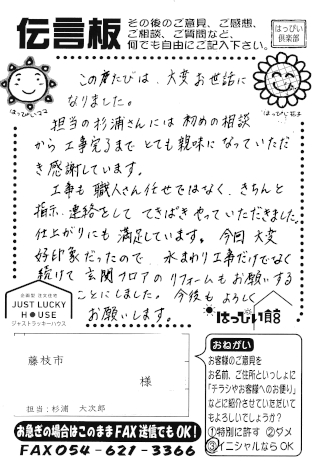 伝言板
その後のご意見、ご感想、
ご相談、ご質問など、
何でも自由にご記入下さい。
はっぴい
倶楽部
この度たびは、大変お世話に
なりました。
担当の杉浦さんには初めの相談
から工事完了までとても親味になっていただ
き感謝しています。
工事も職人さん任せではなく、きちんと
指示、連絡をして てきぱきやっていただきました。
仕上がりにも満足しています。今回大変
好印象だったので、水まわり工事だけでなく
続けて玄関フロアのリフォームもお願いする
ことにしました。今後もよろしく
お願いします。
はっぴいママ
はっぴい花子
企画型 注文住宅
JUST LUCKY
HOUSE
ジャストラッキーハウス
はっぴい館
藤枝市
様
担当:杉浦 大次郎
おねがい
お客様のご意見を
お名前、ご住所といっしょに
「チラシやお客様へのお便り」
などに紹介させていただいて
もよろしいでしょうか?
①特別に許す ②ダメ
③イニシャルならOK
お急ぎの場合はこのままFAX送信でもOK!
FAX054-621-3366